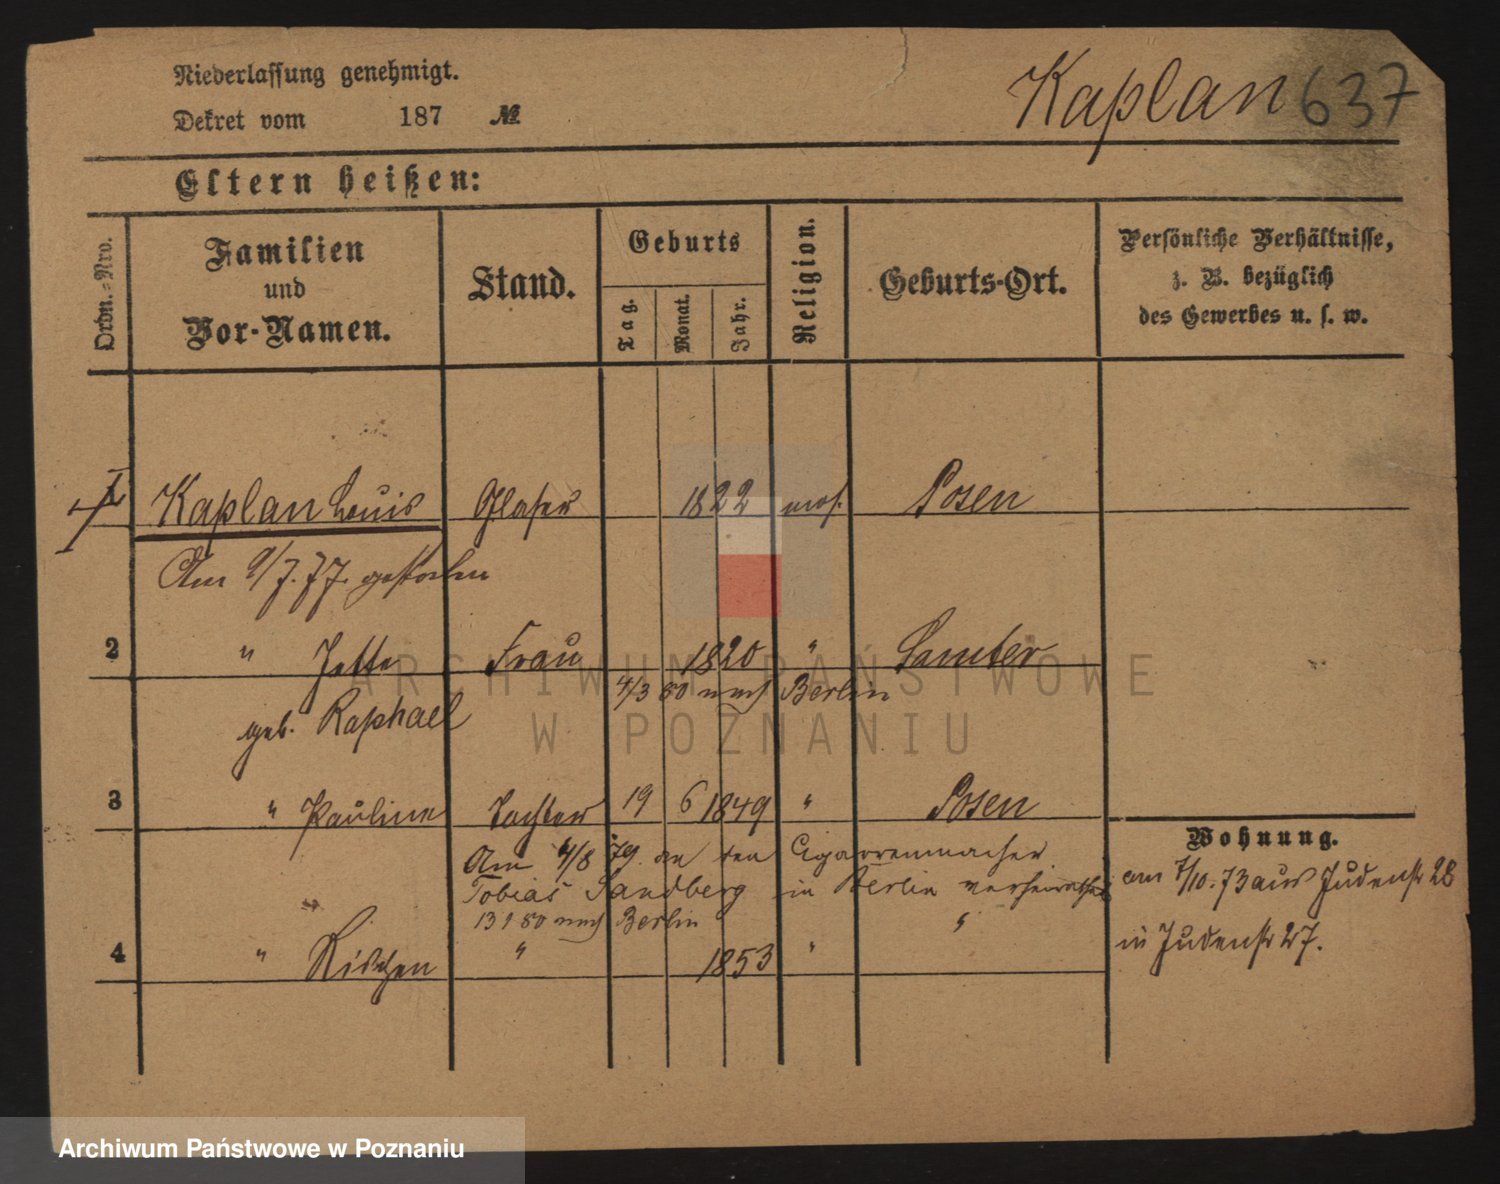 Niederlassung genehmigt.
Dekret vom 187 №
Kaplan 637
Eltern heißen:
Ordn.-Nro.
Familien
und
Vor-Namen.
Stand.
Geburts
Tag.
Monat.
Jahr.
Religion.
Geburts-Ort.
Persönliche Verhältnisse,
z. B. bezüglich
des Gewerbes u. s. w.
Kaplan Louis Glaser 1822 mos. Posen
Am 9/7.77. gestorben
2 " Jette Frau 1820 " Samter
4/3 80 nach Berlin
geb. Raphael
3 " Pauline Tochter 19 6 1849 " Posen
Am 4/8 79. an den Cigarrenmacher
Tobias Sandberg in Berlin verheirathet
13 1 80 nach Berlin
4 " " 1853 " "
Wohnung.
am 7/10.73 aus Judenstr 28
in Judenstr 27.
ARCHIWUM PAŃSTWOWE
W POZNANIU
Archiwum Państwowe w Poznaniu